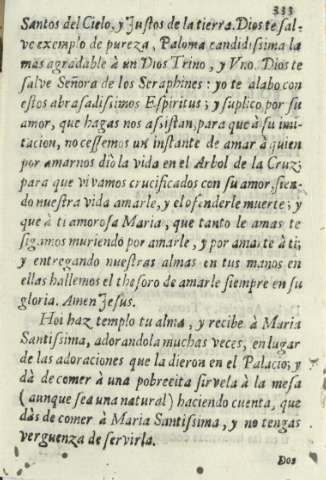 333
Santos del Cielo, y Justos de la tierra. Dios te sal-
ve exemplo de pureza, Paloma candidissima la
mas agradable à un Dios Trino, y Vno. Dios te
salve Señora de los Seraphines: yo te alabo con
estos abrasadissimos Espiritus; y suplico por su
amor, que hagas nos assistan, para que à su imi-
tacion, no cessemos un instante de amar à quien
por amarnos diò la vida en el Arbol de la Cruz;
para que vivamos crucificados con su amor, sien-
do nuestra vida amarle, y el ofenderle muerte; y
que à ti amorosa Maria, que tanto le amas te
sigamos muriendo por amarle, y por amarte à ti;
y entregando nuestras almas en tus manos en
ellas hallemos el thesoro de amarle siempre en su
gloria. Amen Jesus.
Hoi haz templo tu alma, y recibe à Maria
Santissima, adorandola muchas veces, en lugar
de las adoraciones que la dieron en el Palacio; y
dà de comer à una pobrecita sirvela à la mesa
(aunque sea una natural) haciendo cuenta, que
dàs de comer à Maria Santissima, y no tengas
verguenza de servirla.
Dos